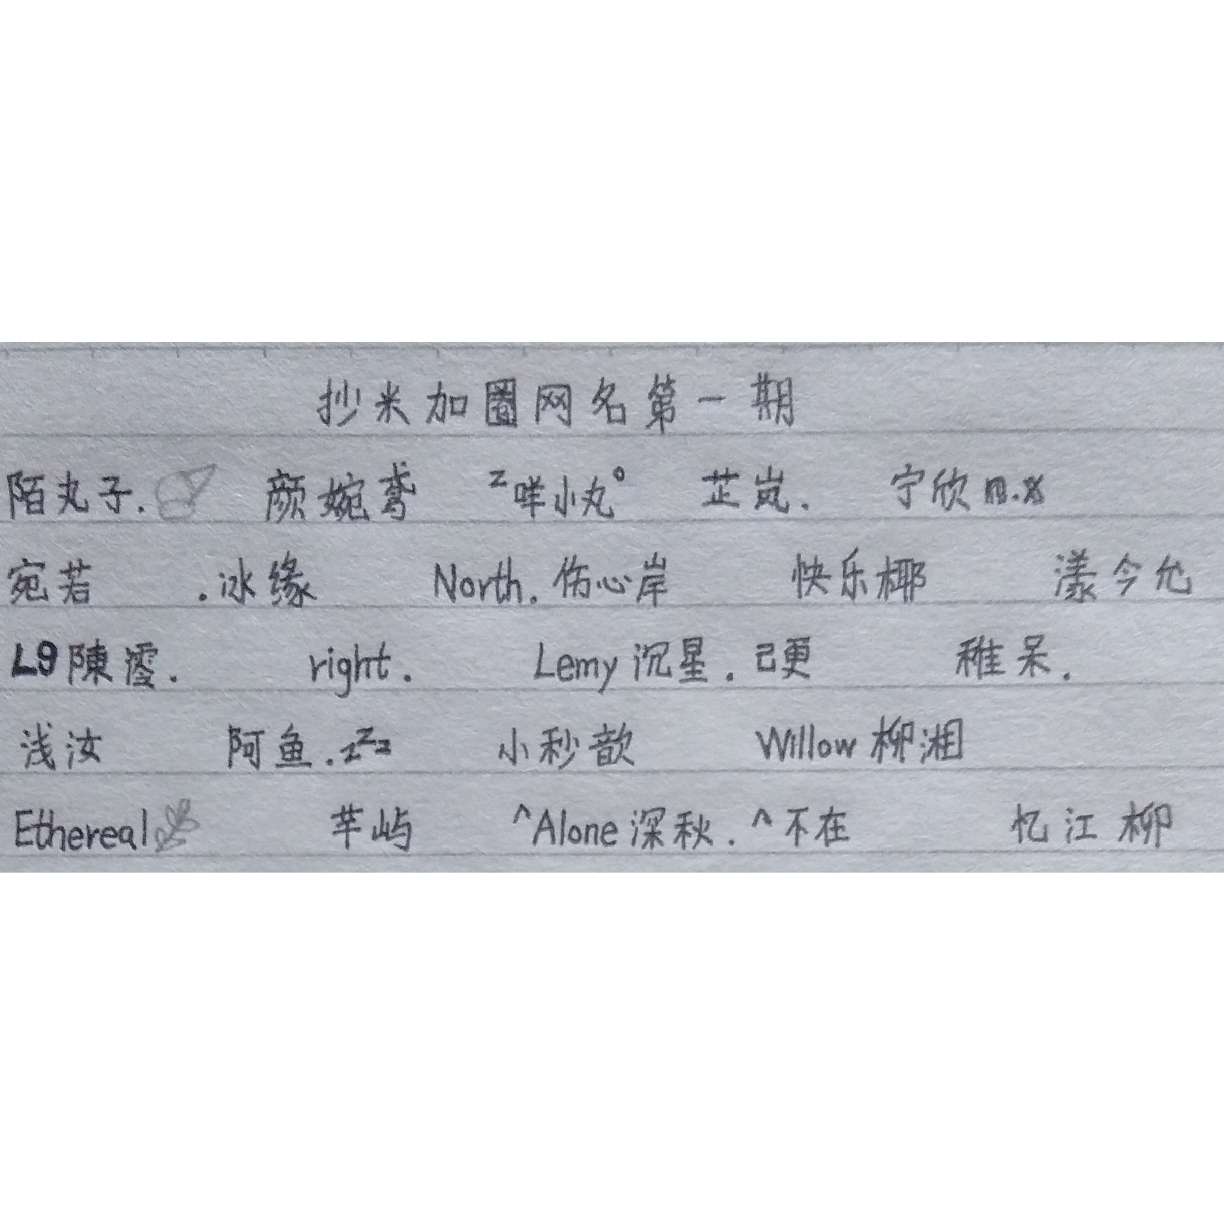 抄米加圈网名第一期
陌丸子. 颜婉鸢 ᶻ咩小丸° 芷岚. 宁欣n.x
宛若 .冰缘 North.伤心岸 快乐椰 漾今允
L9陳霞. right. Lemy沉星.已更 稚呆.
浅汝 阿鱼.zᶻz 小秒歆 Willow柳湘
Ethereal 芊屿 ^Alone深秋.^不在 忆江柳